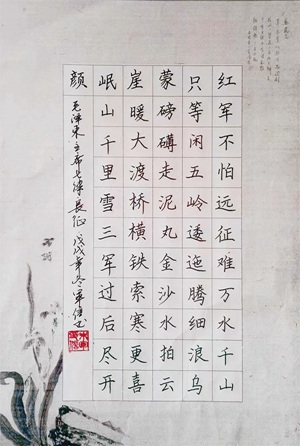 红军不怕远征难万水千山
只等闲五岭逶迤腾细浪乌
蒙磅礴走泥丸金沙水拍云
崖暖大渡桥横铁索寒更喜
岷山千里雪三军过后尽开
颜
毛泽东主席七律長征 戊戌年冬